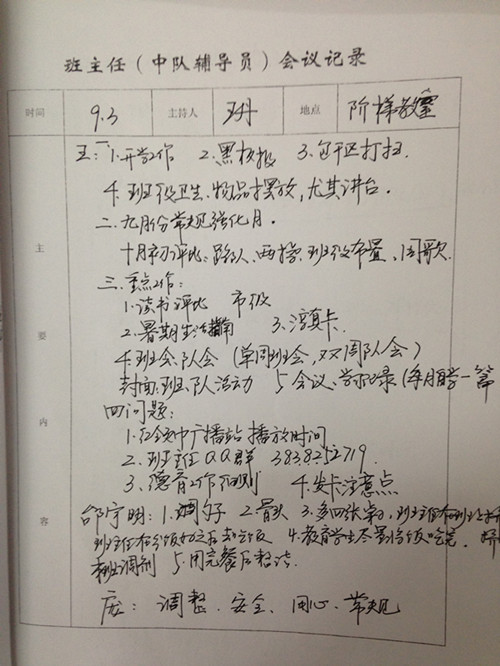 班主任（中队辅导员）会议记录
时间 9.3 主持人 地点 阶梯教室
主要内容
王：一 1.开学工作 2.黑板报 3.包干区打扫.
4.班级卫生、物品摆放,尤其讲台.
二.九月份常规强化月.
十月初评比:路队、两操、班级布置、周歌.
三.重点工作:
1.读书评比 市级
2.暑期生活指南 3.
4.班会、队会（单周班会,双周队会）
封面:班、队活动 5.会议、学习记录(每月自学一篇
四问题:
1.红领巾广播站播放时间
2.班主任QQ群 3838252719.
3.德育工作细则 4.发卡注意点
明: 1.调勺子 2.骨头 3.
班主任 4.教育学生尽量将饭吃完.
调剂 5.用完餐后整洁.
庞: 调整、安全、用心、常规